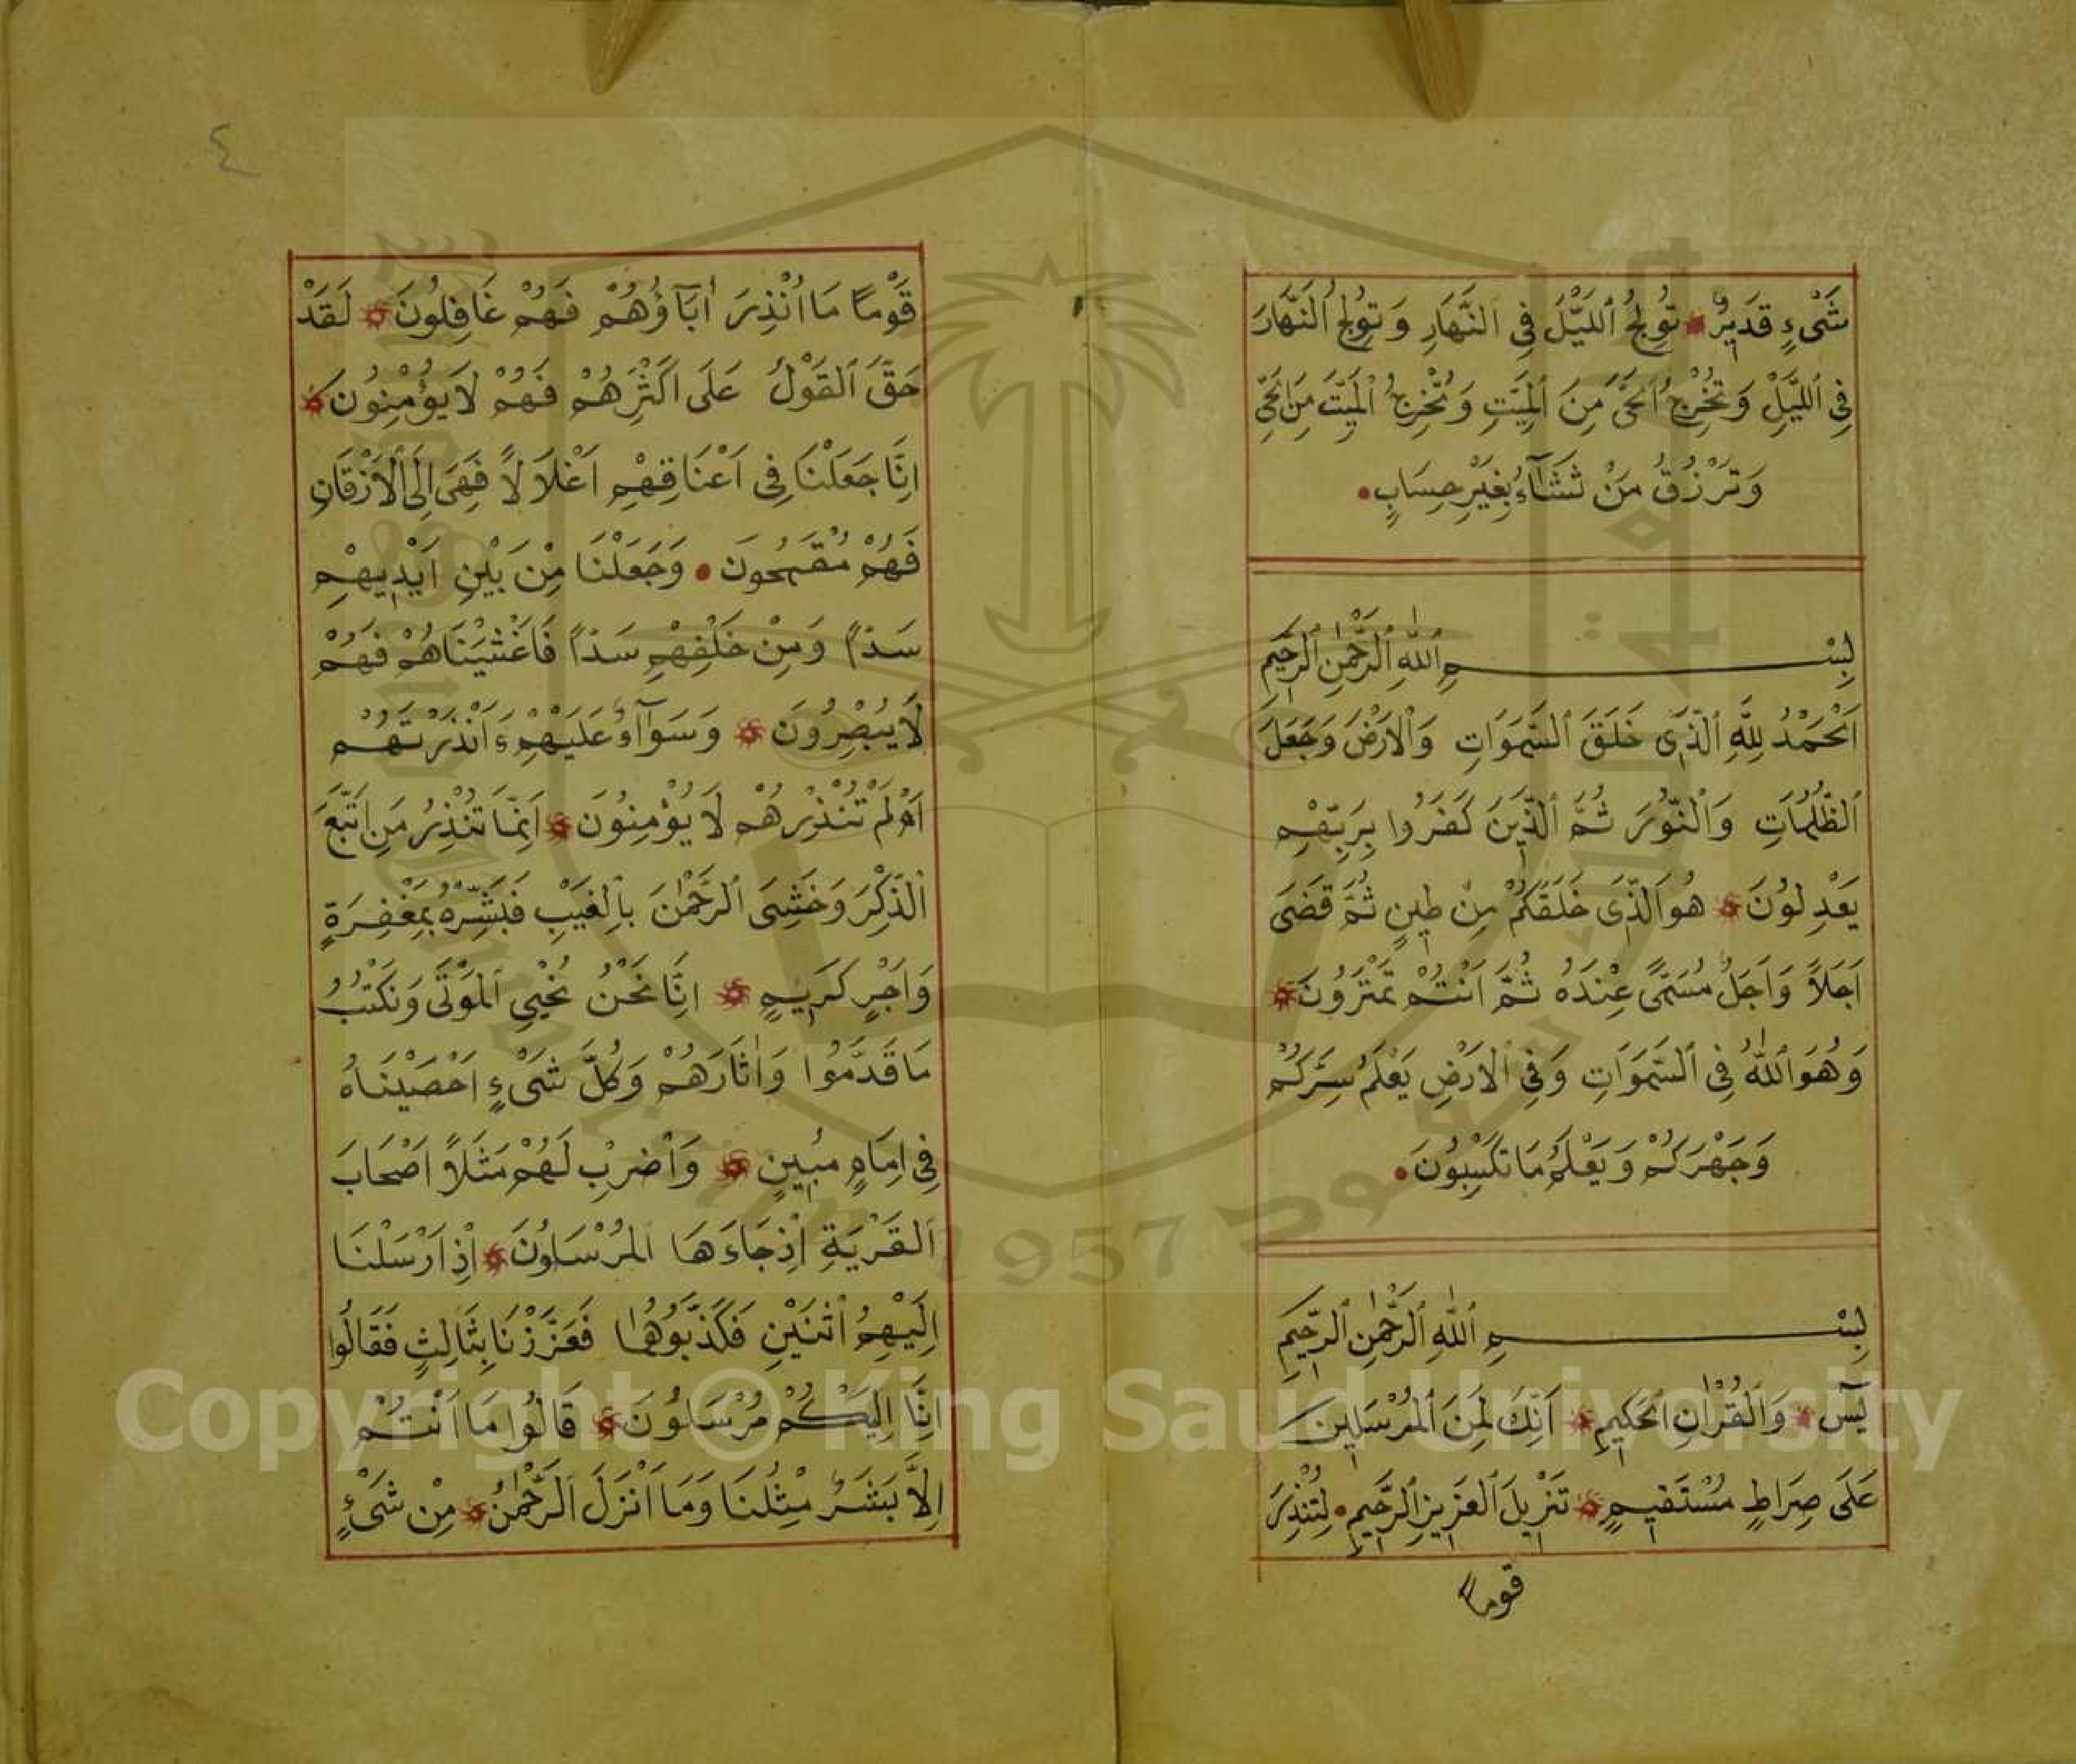 شَىْءٍ قَدِيرٌ تُولِجُ ٱللَّيْلَ فِى ٱلنَّهَارِ وَتُولِجُ ٱلنَّهَارَ
فِى ٱللَّيْلِ وَتُخْرِجُ ٱلْحَىَّ مِنَ ٱلْمَيِّتِ وَتُخْرِجُ ٱلْمَيِّتَ مِنَ ٱلْحَىِّ
وَتَرْزُقُ مَنْ تَشَآءُ بِغَيْرِ حِسَابٍ
بِسْمِ ٱللّٰهِ ٱلرَّحْمٰنِ ٱلرَّحِيمِ
اَلْحَمْدُ لِلّٰهِ ٱلَّذِى خَلَقَ ٱلسَّمَوَاتِ وَٱلْاَرْضَ وَجَعَلَ
ٱلظُّلُمَاتِ وَٱلنُّورَ ثُمَّ ٱلَّذِينَ كَفَرُوا بِرَبِّهِمْ
يَعْدِلُونَ هُوَ ٱلَّذِى خَلَقَكُمْ مِنْ طِينٍ ثُمَّ قَضَى
اَجَلاً وَاَجَلٌ مُسَمًّى عِنْدَهُ ثُمَّ اَنْتُمْ تَمْتَرُونَ
وَهُوَ ٱللّٰهُ فِى ٱلسَّمَوَاتِ وَفِى ٱلْاَرْضِ يَعْلَمُ سِرَّكُمْ
وَجَهْرَكُمْ وَيَعْلَمُ مَا تَكْسِبُونَ
بِسْمِ ٱللّٰهِ ٱلرَّحْمٰنِ ٱلرَّحِيمِ
يٓسٓ وَٱلْقُرْاٰنِ ٱلْحَكِيمِ اِنَّكَ لَمِنَ ٱلْمُرْسَلِينَ
عَلَى صِرَاطٍ مُسْتَقِيمٍ تَنْزِيلَ ٱلْعَزِيزِ ٱلرَّحِيمِ لِتُنْذِرَ
قوماً
٤
قَوْمًا مَا اُنْذِرَ اٰبَآؤُهُمْ فَهُمْ غَافِلُونَ لَقَدْ
حَقَّ ٱلْقَوْلُ عَلَى اَكْثَرِهِمْ فَهُمْ لَا يُؤْمِنُونَ
اِنَّا جَعَلْنَا فِى اَعْنَاقِهِمْ اَغْلَالًا فَهِىَ اِلَى ٱلْاَذْقَانِ
فَهُمْ مُقْمَحُونَ وَجَعَلْنَا مِنْ بَيْنِ اَيْدِيهِمْ
سَدًّا وَمِنْ خَلْفِهِمْ سَدًّا فَاَغْشَيْنَاهُمْ فَهُمْ
لَا يُبْصِرُونَ وَسَوَآءٌ عَلَيْهِمْ ءَاَنْذَرْتَهُمْ
اَمْ لَمْ تُنْذِرْهُمْ لَا يُؤْمِنُونَ اِنَّمَا تُنْذِرُ مَنِ ٱتَّبَعَ
ٱلذِّكْرَ وَخَشِىَ ٱلرَّحْمٰنَ بِالْغَيْبِ فَبَشِّرْهُ بِمَغْفِرَةٍ
وَاَجْرٍ كَرِيمٍ اِنَّا نَحْنُ نُحْيِى ٱلْمَوْتَى وَنَكْتُبُ
مَا قَدَّمُوا وَاٰثَارَهُمْ وَكُلَّ شَىْءٍ اَحْصَيْنَاهُ
فِى اِمَامٍ مُبِينٍ وَاضْرِبْ لَهُمْ مَثَلاً اَصْحَابَ
ٱلْقَرْيَةِ اِذْ جَاءَهَا ٱلْمُرْسَلُونَ اِذْ اَرْسَلْنَا
اِلَيْهِمُ ٱثْنَيْنِ فَكَذَّبُوهُمَا فَعَزَّزْنَا بِثَالِثٍ فَقَالُوا
اِنَّا اِلَيْكُمْ مُرْسَلُونَ قَالُوا مَا اَنْتُمْ
اِلَّا بَشَرٌ مِثْلُنَا وَمَا اَنْزَلَ ٱلرَّحْمٰنُ مِنْ شَىْءٍ
1957
Copyright © King Saud University